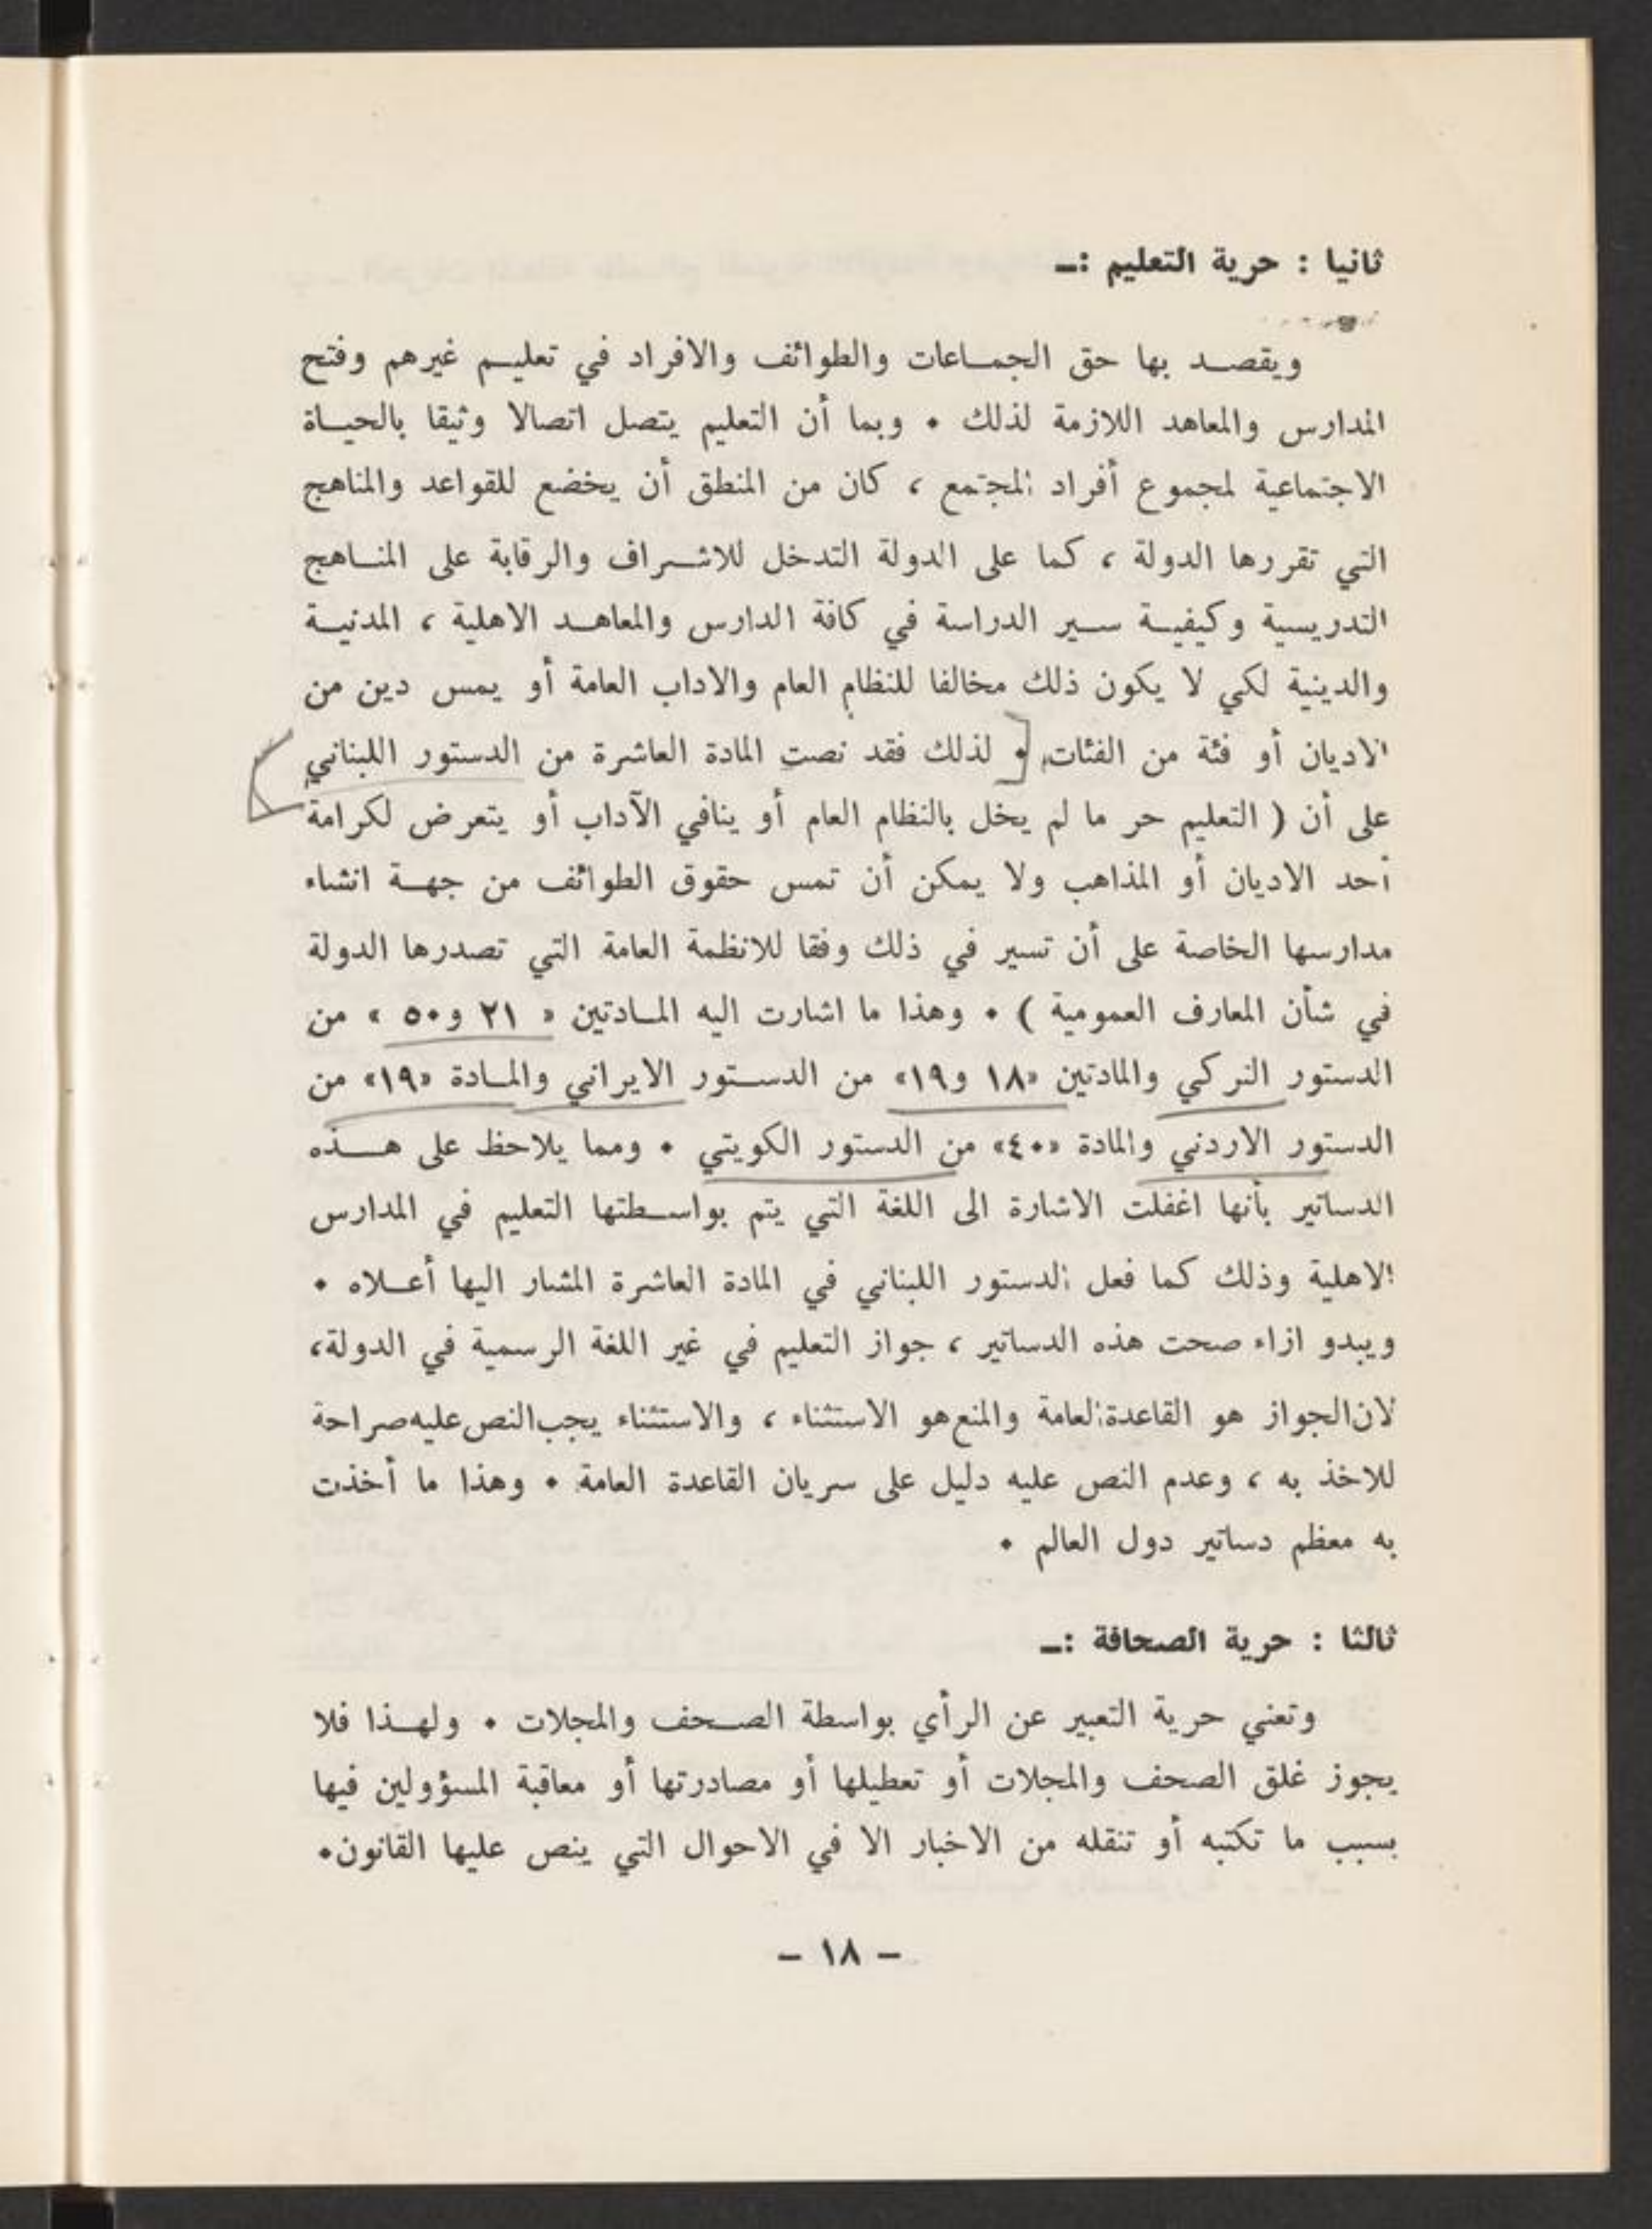 ثانيا : حرية التعليم :ـ
ويقصـد بها حق الجمـاعات والطوائف والافراد في تعليـم غيرهم وفتح
المدارس والمعاهد اللازمة لذلك • وبما أن التعليم يتصل اتصالا وثيقا بالحيـاة
الاجتماعية لمجموع أفراد المجتمع ، كان من المنطق أن يخضع للقواعد والمناهج
التي تقررها الدولة ، كما على الدولة التدخل للاشـراف والرقابة على المنـاهج
التدريسية وكيفيـة سـير الدراسة في كافة الدارس والمعاهـد الاهلية ، المدنيـة
والدينية لكي لا يكون ذلك مخالفا للنظام العام والاداب العامة أو يمس دين من
الاديان أو فئة من الفئات • لذلك فقد نصت المادة العاشرة من الدستور اللبناني
على أن ( التعليم حر ما لم يخل بالنظام العام أو ينافي الآداب أو يتعرض لكرامة
أحد الاديان أو المذاهب ولا يمكن أن تمس حقوق الطوائف من جهـة انشاء
مدارسها الخاصة على أن تسير في ذلك وفقا للانظمة العامة التي تصدرها الدولة
في شأن المعارف العمومية ) • وهذا ما اشارت اليه المـادتين « ٢١ و٥٠ » من
الدستور التركي والمادتين «١٨ و١٩» من الدسـتور الايراني والمـادة «١٩» من
الدستور الاردني والمادة «٤٠» من الدستور الكويتي • ومما يلاحظ على هـــذه
الدساتير بأنها اغفلت الاشارة الى اللغة التي يتم بواسـطتها التعليم في المدارس
الاهلية وذلك كما فعل الدستور اللبناني في المادة العاشرة المشار اليها أعـلاه •
ويبدو ازاء صحت هذه الدساتير ، جواز التعليم في غير اللغة الرسمية في الدولة،
لان الجواز هو القاعدة العامة والمنع هو الاستثناء ، والاستثناء يجب النص عليه صراحة
للاخذ به ، وعدم النص عليه دليل على سريان القاعدة العامة • وهذا ما أخذت
به معظم دساتير دول العالم •
ثالثا : حرية الصحافة :ـ
وتعني حرية التعبير عن الرأي بواسطة الصـحف والمجلات • ولهـذا فلا
يجوز غلق الصحف والمجلات أو تعطيلها أو مصادرتها أو معاقبة المسؤولين فيها
بسبب ما تكتبه أو تنقله من الاخبار الا في الاحوال التي ينص عليها القانون•
– ١٨ –